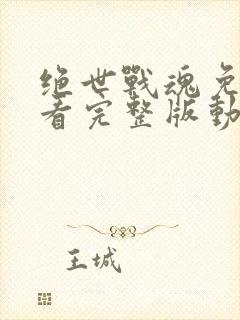 绝世戰魂免
看完整版動
王城